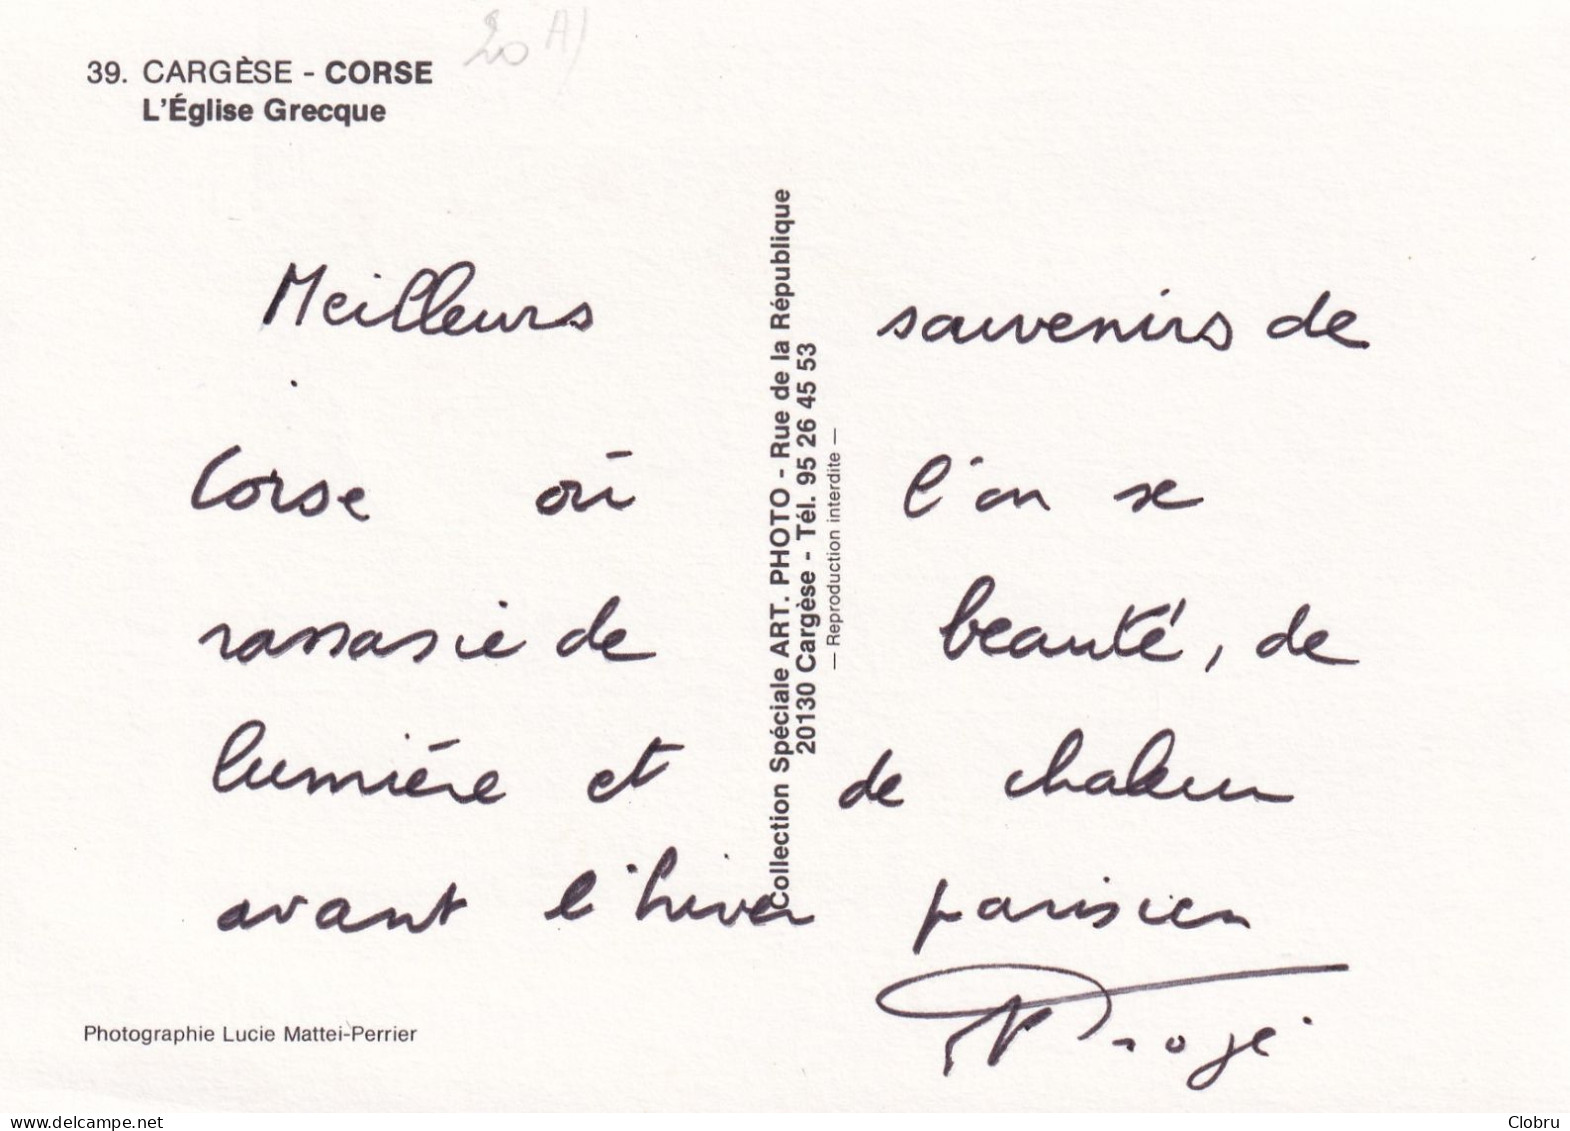 39. CARGÈSE - CORSE
L'Église Grecque
20
Meilleurs souvenirs de
Corse où l'on se
rassasie de beauté, de
lumière et de chaleur
avant l'hiver parisien
Collection Spéciale ART. PHOTO - Rue de la République
20130 Cargèse - Tél. 95 26 45 53
— Reproduction interdite —
Photographie Lucie Mattei-Perrier
www.delcampe.net
Clobru